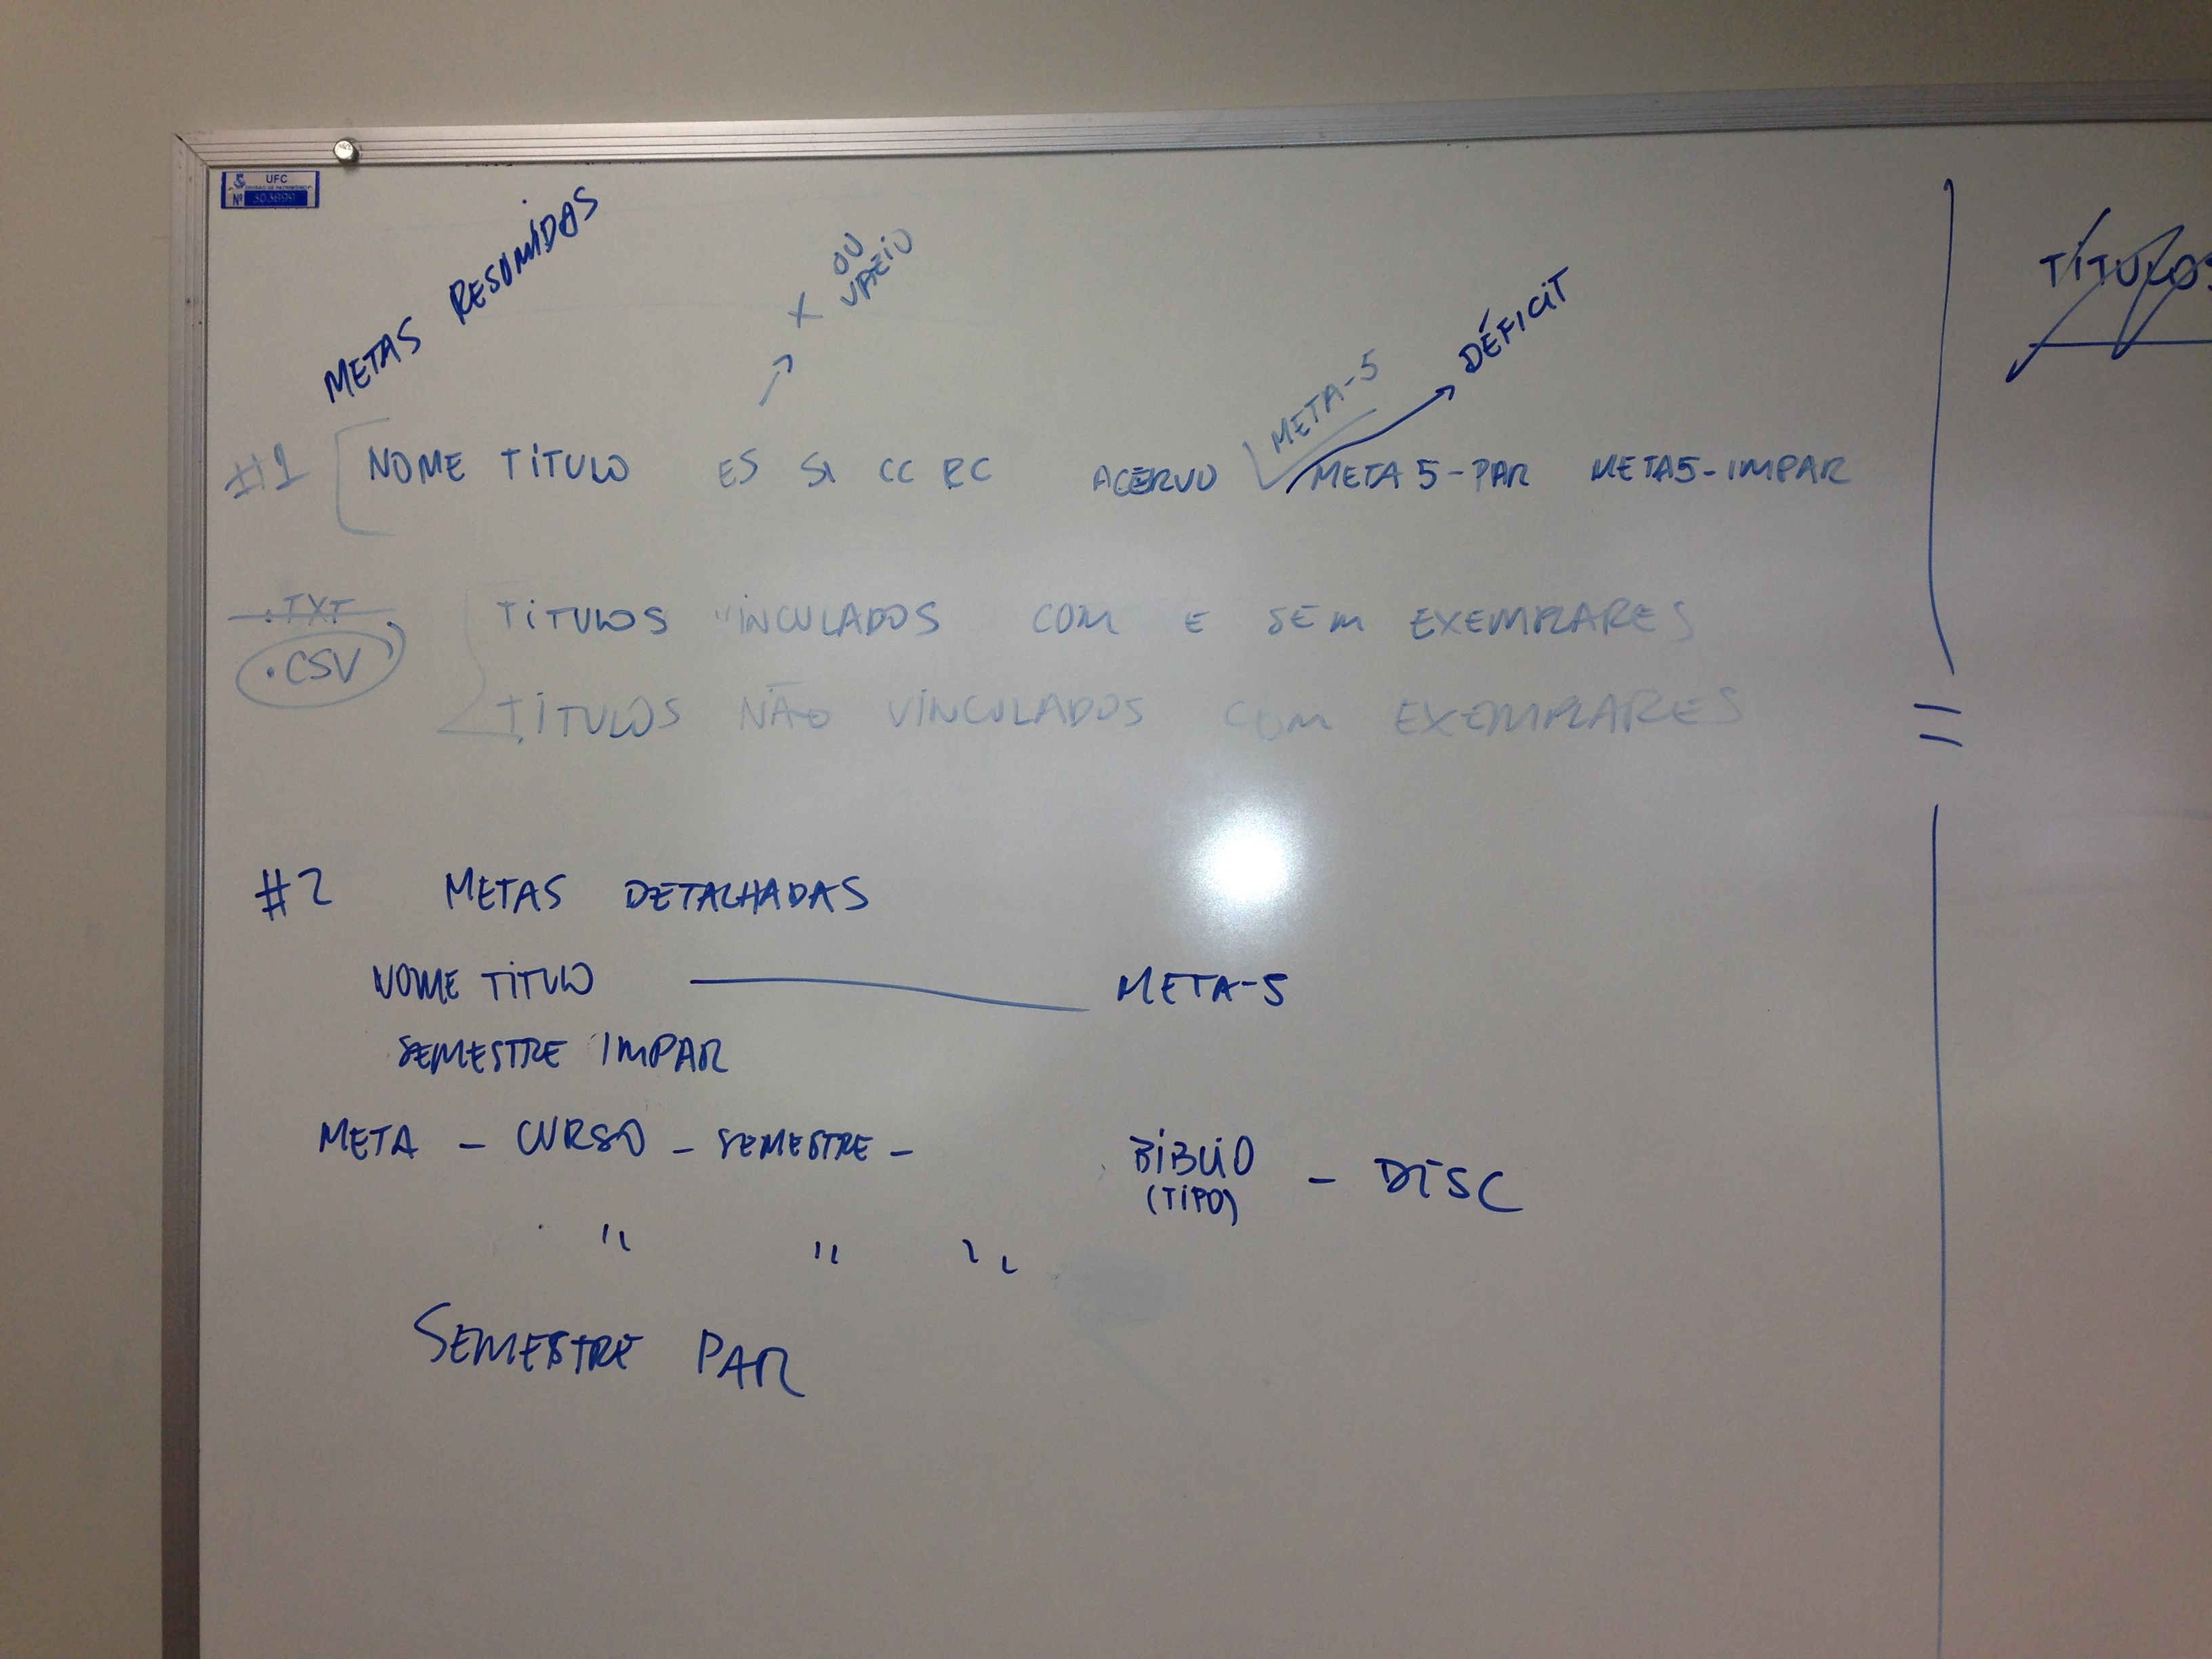 UFC
Nº 303899
METAS RESUMIDAS
X OU
VAZIO
DÉFICIT
META-5
#1 NOME TÍTULO ES SI CC RC ACERVO META 5-PAR META5-IMPAR
.TXT
.CSV
TÍTULOS VINCULADOS COM E SEM EXEMPLARES
TÍTULOS NÃO VINCULADOS COM EXEMPLARES
#2 METAS DETALHADAS
NOME TÍTULO META-5
SEMESTRE IMPAR
META - CURSO - SEMESTRE - BIBLIO - DISC
(TIPO)
" " "
SEMESTRE PAR
TÍTULOS